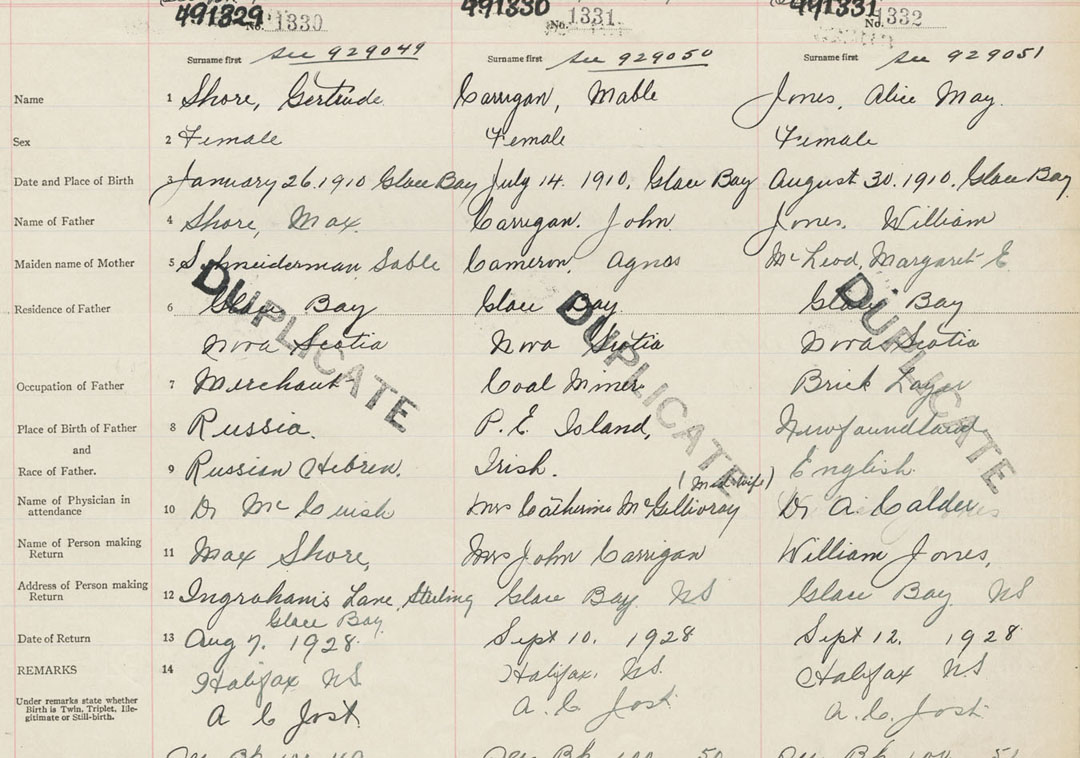 491329 No. 1330 491330 No. 1331 491331 No. 1332
Surname first See 929049 Surname first See 929050 Surname first See 929051
Name 1 Shore, Gertrude Carrigan, Mable Jones, Alice May.
Sex 2 Female Female Female
Date and Place of Birth 3 January 26. 1910 Glace Bay July 14. 1910. Glace Bay August 30. 1910. Glace Bay
Name of Father 4 Shore, Max. Carrigan. John. Jones. William
Maiden name of Mother 5 Schneiderman Sable Cameron, Agnes McLeod, Margaret E.
Residence of Father 6 Glace Bay Glace Bay Glace Bay
Nova Scotia Nova Scotia Nova Scotia
DUPLICATE DUPLICATE DUPLICATE
Occupation of Father 7 Merchant Coal Miner Brick Layer
Place of Birth of Father 8 Russia. P. E. Island, Newfoundland
and
Race of Father. 9 Russian Hebrew. Irish. English
(Midwife)
Name of Physician in attendance 10 Dr McCuish Mrs Catherine McGillivray Dr A. Calder
Name of Person making Return 11 Max Shore, Mrs John Carrigan William Jones,
Address of Person making Return 12 Ingraham's Lane, Sterling Glace Bay NS Glace Bay NS
Glace Bay
Date of Return 13 Aug 7. 1928 Sept 10. 1928 Sept 12. 1928
REMARKS 14 Halifax NS Halifax. NS. Halifax NS
Under remarks state whether Birth is Twin, Triplet, Ille-
gitimate or Still-birth.
A C Jost A. C. Jost A. C. Jost